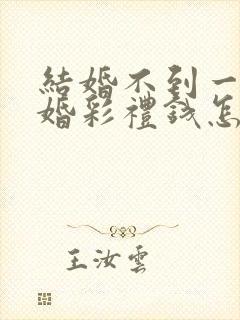 結婚不到一
婚彩禮錢怎
王汝雲